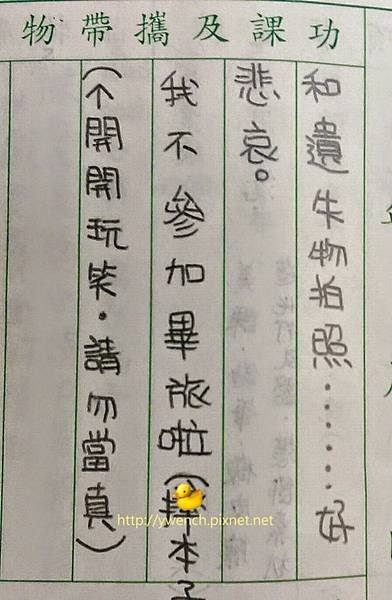 功課及攜帶物
和遺失物拍照......好
悲哀。
我不參加畢旅啦(本子
(開開玩笑.請勿當真)
http://ywench.pixnet.net